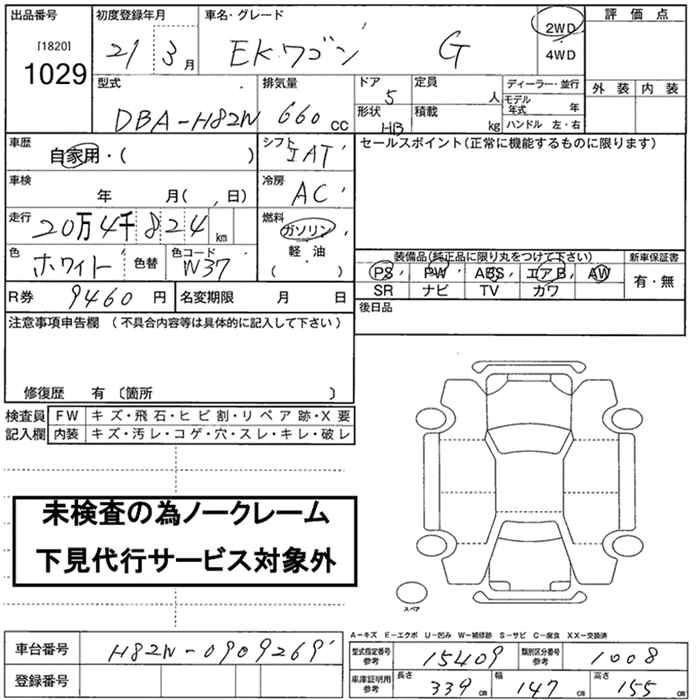 出品番号 初度登録年月 車名・グレード 評価点
[1820] 21 3月 EKワゴン G 2WD
1029 4WD
型式 排気量 ドア 定員 ディーラー・並行 外装 内装
DBA-H82W 660cc 5 人 モデル年式 年
形状 積載
HB kg ハンドル 左・右
車歴 自家用・( ) シフト IAT セールスポイント(正常に機能するものに限ります)
車検 年 月( , 日) 冷房 AC
走行 20万4千824km 燃料 ガソリン
軽・油
( )
色 ホワイト 色替 色コード W37 装備品(純正品に限り丸をつけて下さい) 新車保証書
PS PW ABS エアB AW 有・無
SR ナビ TV カワ
R券 9460円 名変期限 月 日 後日品
注意事項申告欄 (不具合内容等は具体的に記入して下さい)
修復歴 有 〔箇所 〕
検査員 FW キズ・飛石・ヒビ割・リペア跡・X要
記入欄 内装 キズ・汚レ・コゲ・穴・スレ・キレ・破レ
未検査の為ノークレーム
下見代行サービス対象外
スペア
A-キズ E-エクボ U-凹み W-補修跡 S-サビ C-腐食 XX-交換済
車台番号 H82W-0909269 型式指定番号 参考 15409 類別区分番号 参考 1008
登録番号 車庫証明用 参考 長さ 339cm 幅 147cm 高さ 155cm